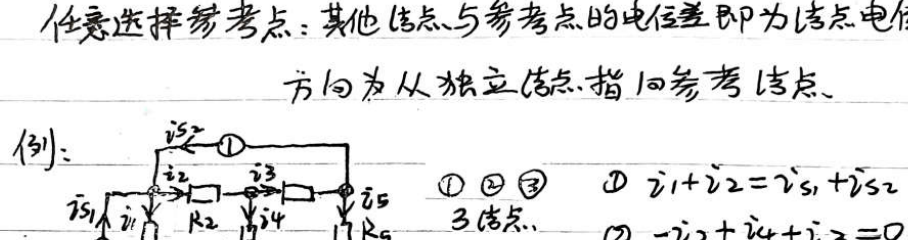 任意选择参考点：其他结点与参考点的电位差即为结点电位
方向为从独立结点指向参考结点、
例：
is2
①
i2 i3
is1 i1 R2 i4 i5
① ② ③
3结点..
① i1+i2=is1+is2
② -i2+i4+i3=0